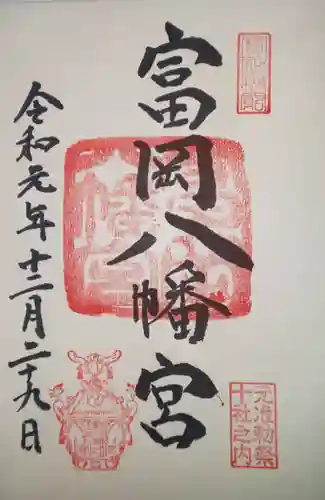 富岡八幡宮
令和元年十二月二十九日
元准勅祭
十社之内